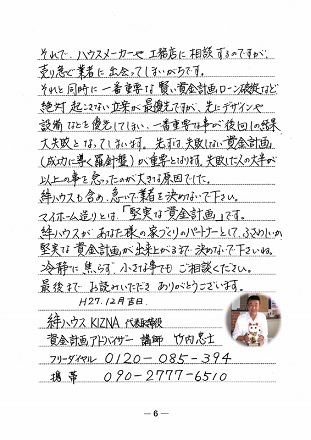 それで、ハウスメーカーや工務店に相談するのですが、
売り急ぐ業者に出会ってしまいがちです。
それと同時に一番重要な賢い資金計画ローン破綻など
絶対起こさない立案が最優先ですが、先にデザインや
設備などを優先してしまい、一番重要な事が後回しの結果、
大失敗となってしまいます。先ずは、失敗しない資金計画
(成功に導く羅針盤)が重要となります。失敗した人の大半が
以上の事を怠ったのが大きな原因でした。
絆ハウスも含め、急いで業者を決めないで下さい。
マイホーム造りとは、「堅実な資金計画」です。
絆ハウスがあなた様の家づくりのパートナーとして、ふさわしいか
堅実な資金計画が出来上がるまで決めないで下さいね。
冷静に焦らず、小さな事でもご相談ください。
最後までお読みいただきありがとうございます。
H27.12月吉日
絆ハウス KIZNA 代表取締役
資金計画アドバイザー 講師 竹内忠士
フリーダイヤル 0120-085-394
携帯 090-2777-6510
— 6 —